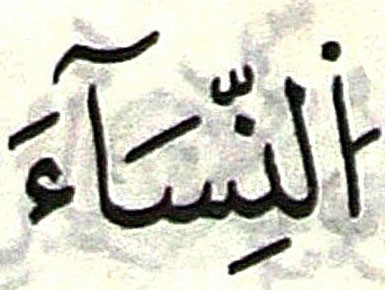 اَ۬لنِّسَآءَ